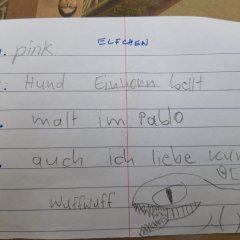 ELFCHEN
pink
Hund Einhorn bellt
malt im Pablo
auch ich liebe
wuffwuff